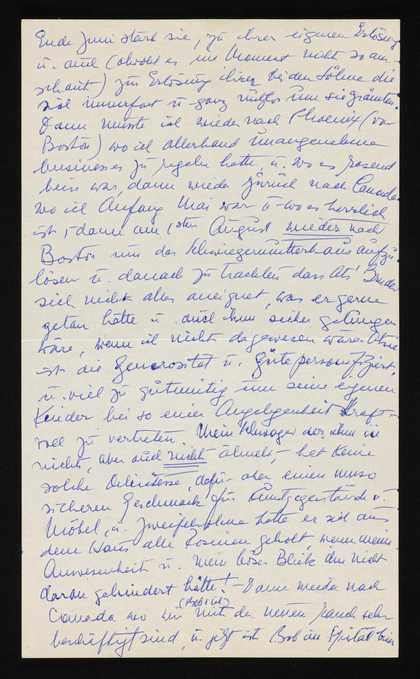 Ende Juni starb sie, zu ihrer eigenen Erlösung
u. auch (obwohl es im Moment nicht so an-
schaut) zur Erlösung ihrer beiden Söhne die
sich immerfort u. ganz nutzlos um sie grämten.
Dann musste ich wieder nach Phoenix (von
Boston) wo ich allerhand unangenehme
businesses zu regeln hatte u. wo es rasend
heiss war, dann wieder zurück nach Canada
wo ich Anfang Mai war u. wo es herrlich
ist, dann am 1sten August wieder nach
Boston um das Schwiegermutterhaus aufzu-
lösen u. danach zu trachten dass Bruder
sich nicht alles aneignet, was er gerne
getan hätte u. auch ihm sicher gelungen
wäre, wenn ich nicht dagewesen wäre.
ist die Generosität u. Güte personifiziert,
u. viel zu gutmütig um seine eigenen
Kinder bei so einer Angelegenheit kraft-
voll zu vertreten. Mein Schwager der ihm in
nichts, aber auch nicht ähnelt, hat keine
solche dafür aber einen
sicheren Geschmack für Kunstgegenstände u.
Möbel, u. zweifelsohne hätte er sich aus
dem Haus alle Rosinen geholt wenn meine
Anwesenheit u. mein böser Blick ihn nicht
daran gehindert hätte! – Dann wieder nach
Canada wo wir mit der neuen Ranch sehr
beschäftigt sind, u. jetzt ist Bob im Spital